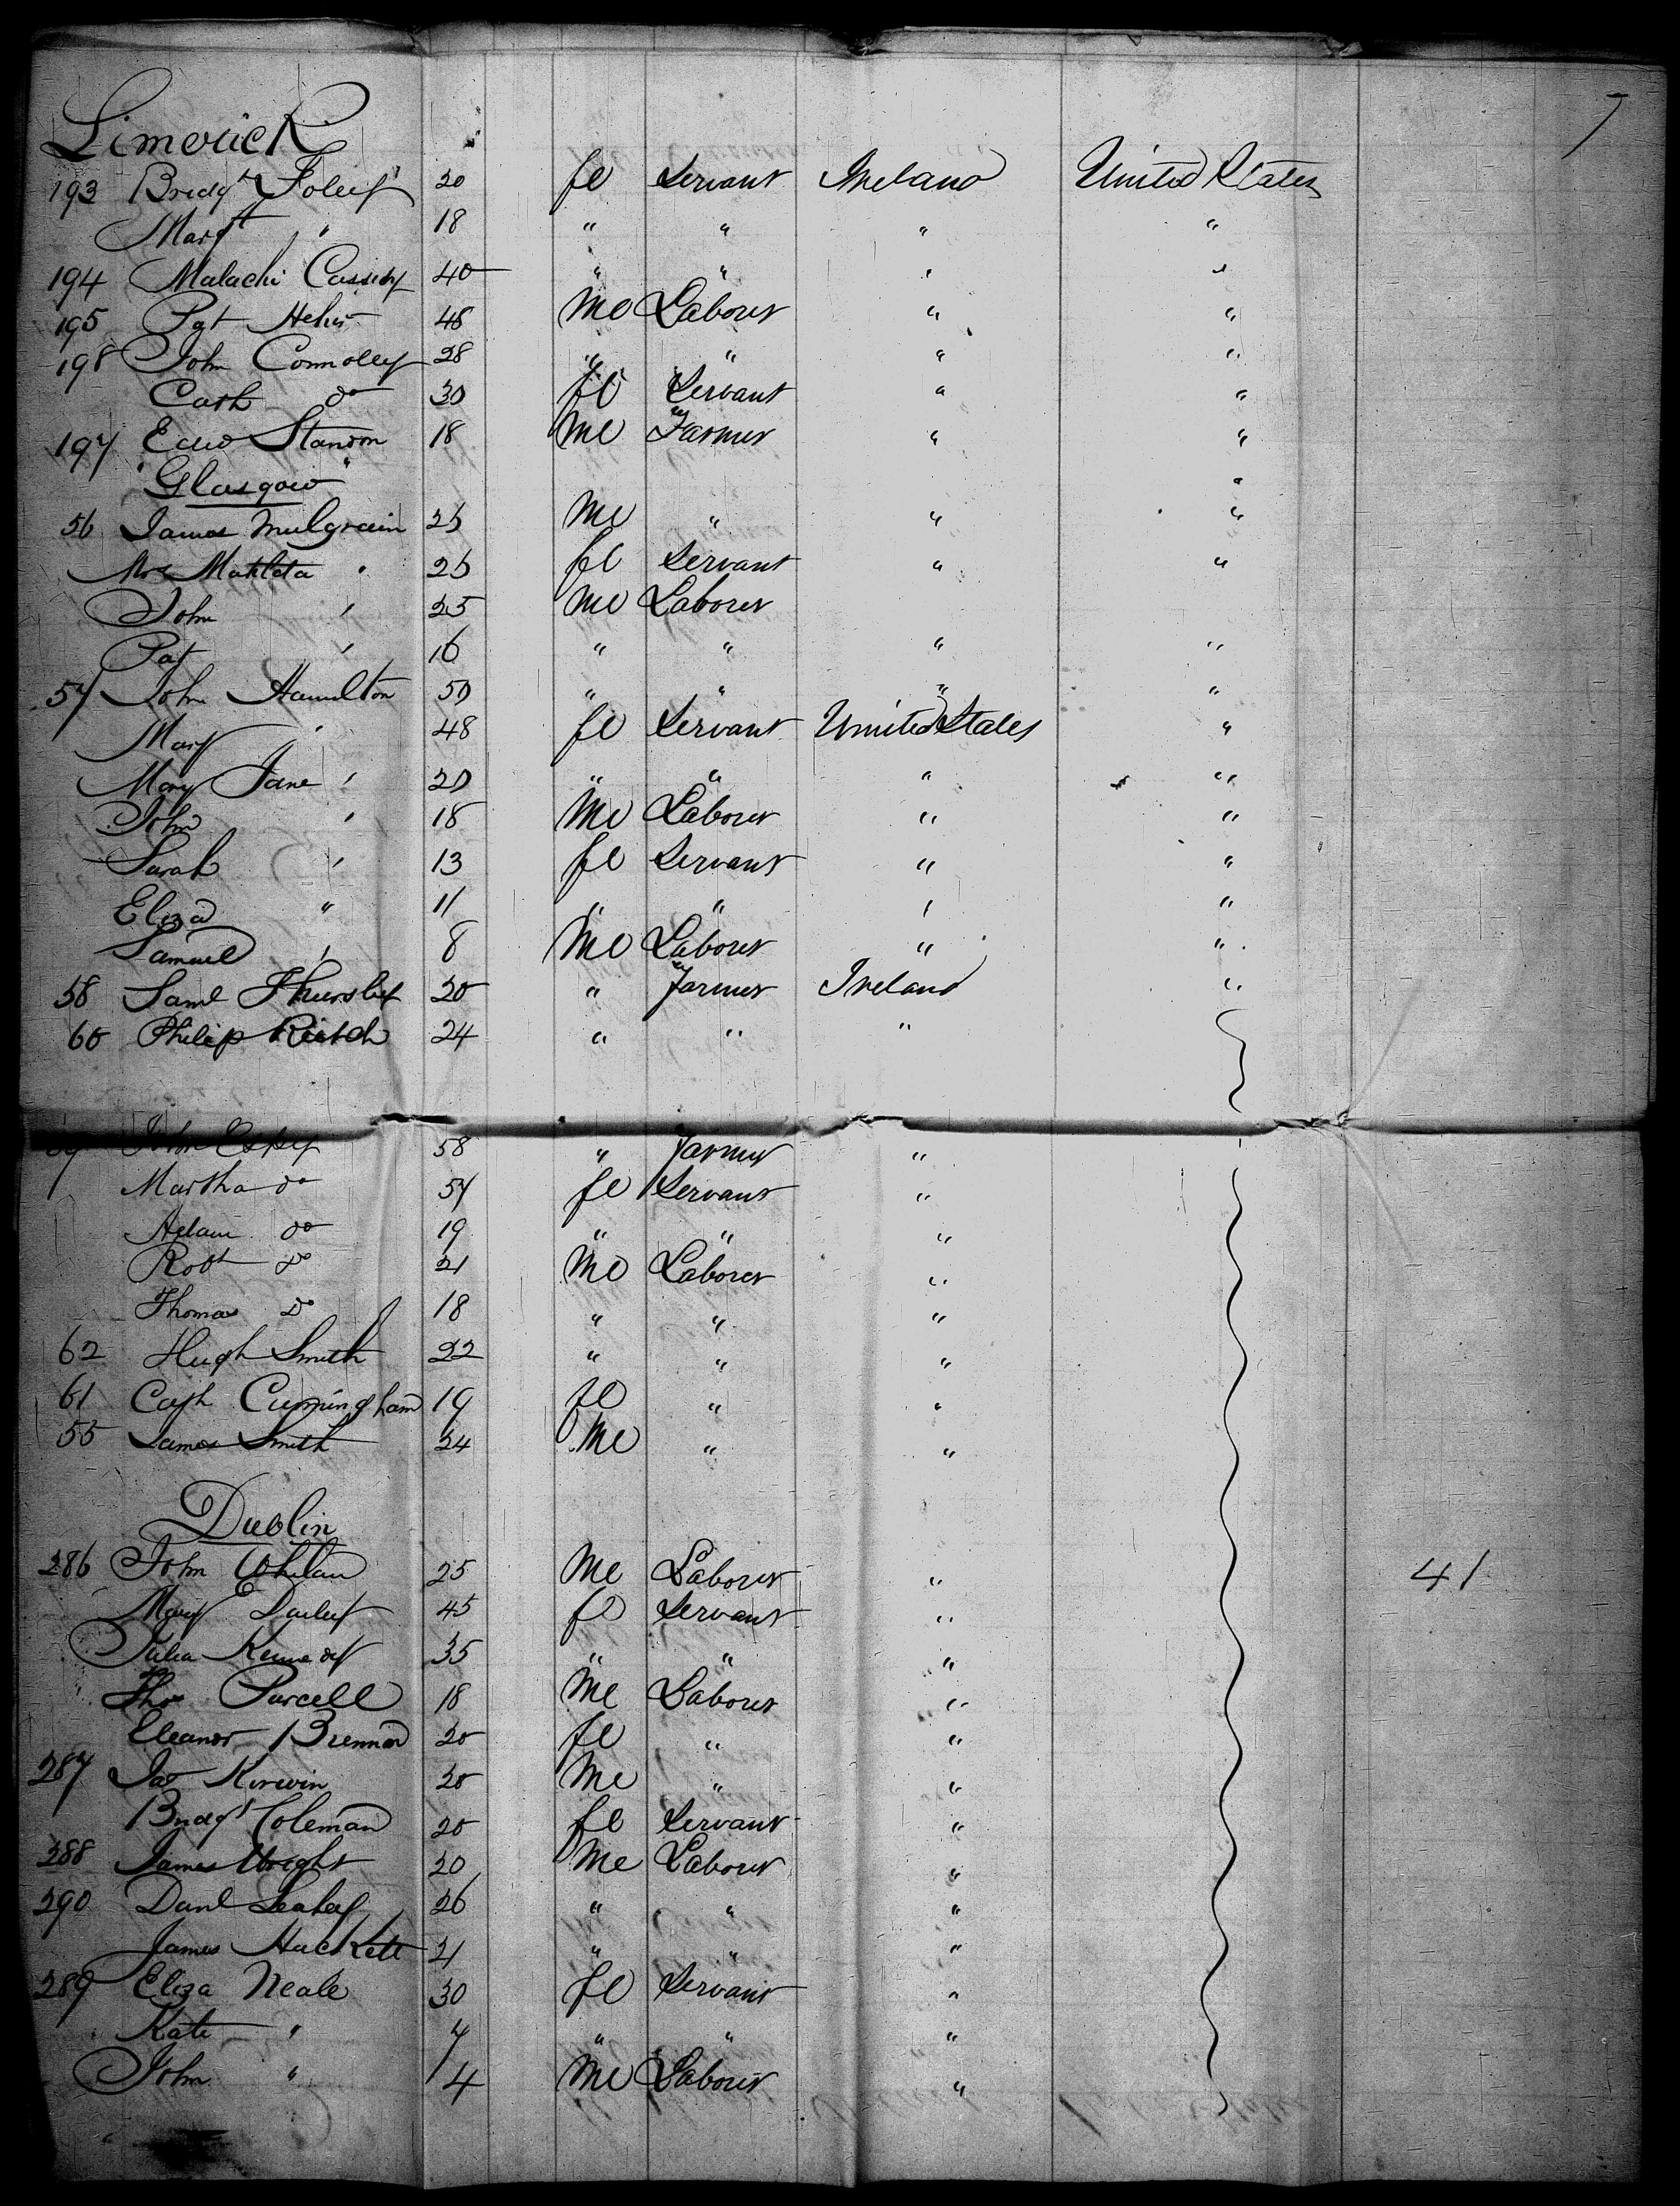 Limerick
193 Bridgt Foley 20 fe Servant Ireland United States
Margt " 18 " " " "
194 Malachi Cassidy 40 " " " "
195 Pat 48 Me Laborer " "
198 John Connolly 28 " " " "
Cath do 30 fe Servant " "
197 Edwd 18 Me Farmer " "
"Glasgow" "
56 James Mulgrain 25 Me " " "
Mrs Matilda " 25 fe Servant " "
John " 25 Me Laborer
Pat " 16 " " " "
57 John Hamilton 50 " " " "
Mary " 48 fe Servant United States "
Mary Jane " 20 " " " "
John " 18 Me Laborer " "
Sarah " 13 fe Servant " "
Eliza " 11 " " " "
Samuel " 8 Me Laborer " "
58 Saml 20 " Farmer Ireland "
60 Philip 24 " " "
59 John Espey 58 " Farmer "
Martha do 57 fe Servant "
Adam do 19 " " "
Robt do 21 Me Laborer "
Thomas do 18 " " "
62 Hugh Smith 22 " " "
61 Cath Cunningham 19 fe " "
55 James Smith 24 Me " "
Dublin
286 John Whelan 25 Me Laborer " 41
Mary Darley 45 fe Servant "
Julia Kennedy 35 " " "
Thos Purcell 18 Me Laborer "
Eleanor Brennan 20 fe " "
287 Jas Kirwin 20 Me " "
Bridgt Coleman 20 fe Servant "
288 James Wright 20 Me Laborer "
290 Danl Leahey 26 " " "
James Hackett 21 " " "
289 Eliza Neale 30 fe Servant "
Kate " 7 " " "
John " 4 Me Laborer "